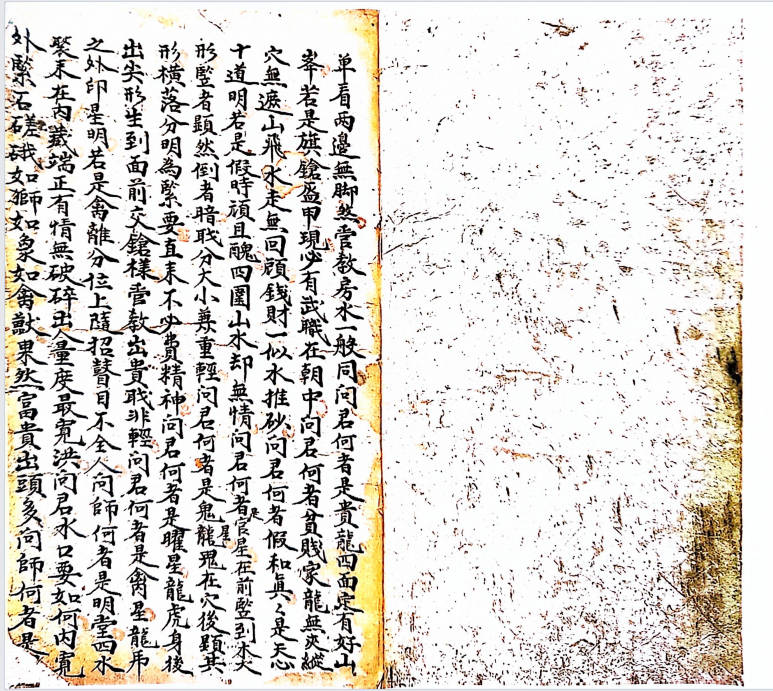 单看两邊無脚然管教房水一般同问君何者是貴龍四面定有好山
峯若是旗鎗盔甲現必有武職在朝中问君何者貧賤家龍無夾縱
穴無遮山飛水走無回頭錢財一似水推砂问君何者假和真々是天心
十道明若是假時頑且醜四圍山水却無情问君何者是官星在前竪到
形竪者顕然倒者暗职分大小兼重輕问君何者是鬼星龍鬼在穴後顕其
形横落分明為緊要直来不必費精神问君何者是曜星龍虎身後
出尖形生到面前交鎗樣管教出貴职非輕问君何者是禽星龍吊
之外印星明若是禽離分位上隨招瞽目不全人问師何者是明堂四水
聚来在内藏端正有情無破碎出人量度最寬洪问君水口要如何内寬
外緊石磋峨如獅如象如禽獸果然富貴出頭多问師何者是